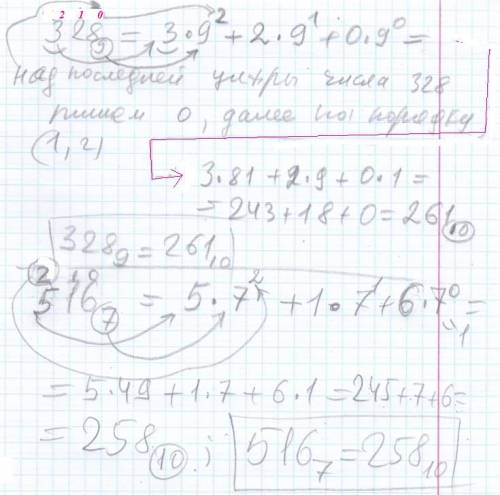 2 1 0
328₉ = 3·9² + 2·9¹ + 0·9⁰ =
над последней цифры числа 328
пишем 0, далее по порядку
(1, 2)
3·81 + 2·9 + 0·1 =
= 243 + 18 + 0 = 261₁₀
328₉ = 261₁₀
2 1 0
516₇ = 5·7² + 1·7¹ + 6·7⁰ =
"1
= 5·49 + 1·7 + 6·1 = 245 + 7 + 6 =
= 258₁₀; 516₇ = 258₁₀